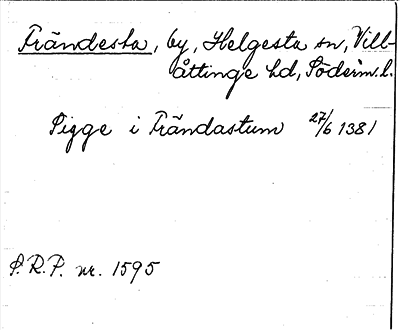 Frändesta, by, Helgesta sn, Vill-
åttinge hd, Söderm.l.
Sigge i Frändastum 27/6 1381
S.R.P. nr. 1595